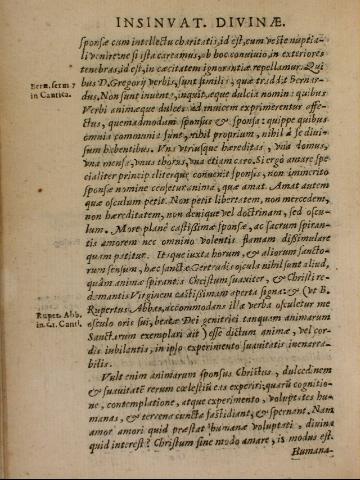 INSINVAT. DIVINÆ.
sponsæ cum intellectu charitatis, id est, cum veste nuptia-
li venire: ne si ista careamus, ab hoc conuiuio, in exteriores
tenebras, id est, in cæcitatem ignorantiæ repellamur. Qui
bus D. Gregorij verbis, sunt similia; quæ tradit Bernar-
Bern. serm 7
in Cantica.
dus. Non sunt inuenta, inquit, æque dulcia nomina: quibus
Verbi animæque dulces ad inuicem exprimerentur affe-
ctus, quemadmodum sponsus & sponsa: quippe quibus
omnia communia sunt, nihil proprium, nihil à se diui-
sum habentibus. Vna vtriusque hæreditas, vna domus,
vna mensa, vnus thorus, vna etiam caro. Si ergò amare spe
cialiter principaliterque conuenit sponsis, non immerito
sponsæ nomine censetur anima, quæ amat. Amat autem
quæ osculum petit. Non petit libertatem, non mercedem,
non hæreditatem, non denique vel doctrinam, sed oscu-
lum. More planè castissimæ sponsæ, ac sacrum spiran-
tis amorem nec omnino volentis flamam dissimulare
quam patitur. Itaque iuxta horum, & aliorum sancto-
rum sensum, hæc sanctæ Gertrudis oscula nihil sunt aliud,
quàm animæ spirantis Christum suauiter, & Christi re-
damantis Virginem castissimam aperta signa: & (vt B.
Rupertus Abbas, accommodans illa verba osculetur me
Rupert. Abb.
in C. Cant.
osculo oris sui, beatæ Dei genitrici tanquam animarum
Sanctarum exemplari ait) esse dictum animæ, vel cor-
dis iubilantis, in ipso experimento suauitatis inenarra-
bilis.
Vult enim animarum sponsus Christus, dulcedinem
& suauitatē rerum cœlestiū eas experiri; quarū cognitio-
ne, contemplatione, atque experimento, voluptates hu-
manas, & terrena cuncta fastidiant, & spernant. Nam
amor amori quid præstat? humanæ voluptati, diuina
quid interest? Christum sine modo amare, is modus est.
Humana